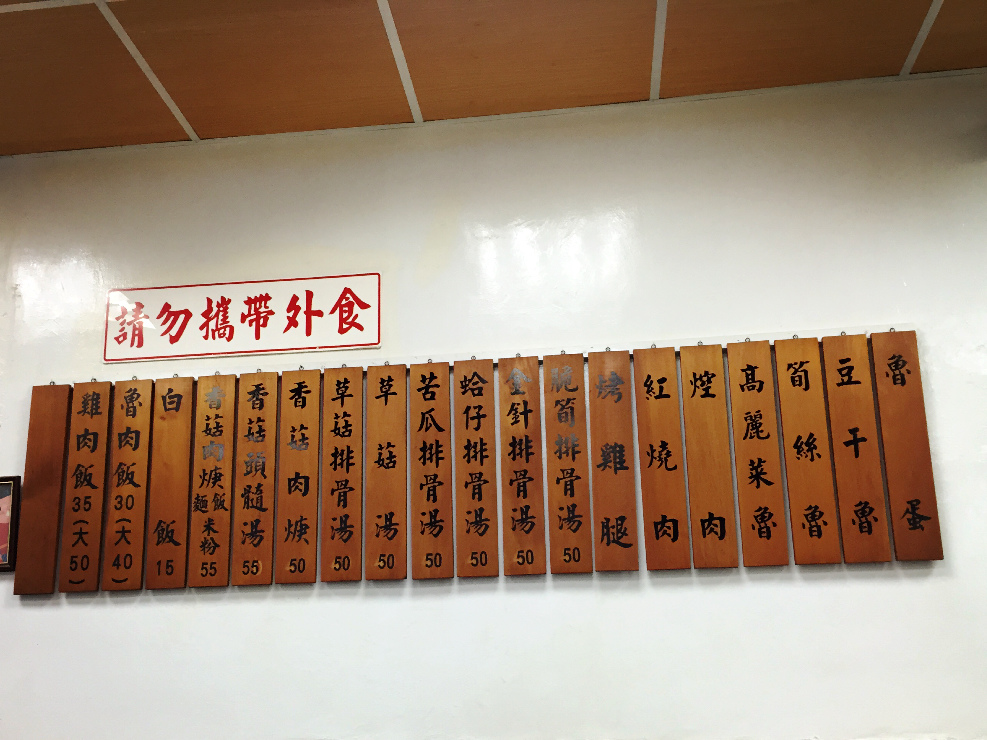 請勿攜帶外食
雞肉飯35(大50)
魯肉飯30(大40)
白飯15
香菇肉焿飯麵米粉55
香菇頭髓湯55
香菇肉焿50
草菇排骨湯50
草菇湯50
苦瓜排骨湯50
蛤仔排骨湯50
金針排骨湯50
脆筍排骨湯50
烤雞腿
紅燒肉
焢肉
高麗菜魯
筍絲魯
豆干魯
魯蛋